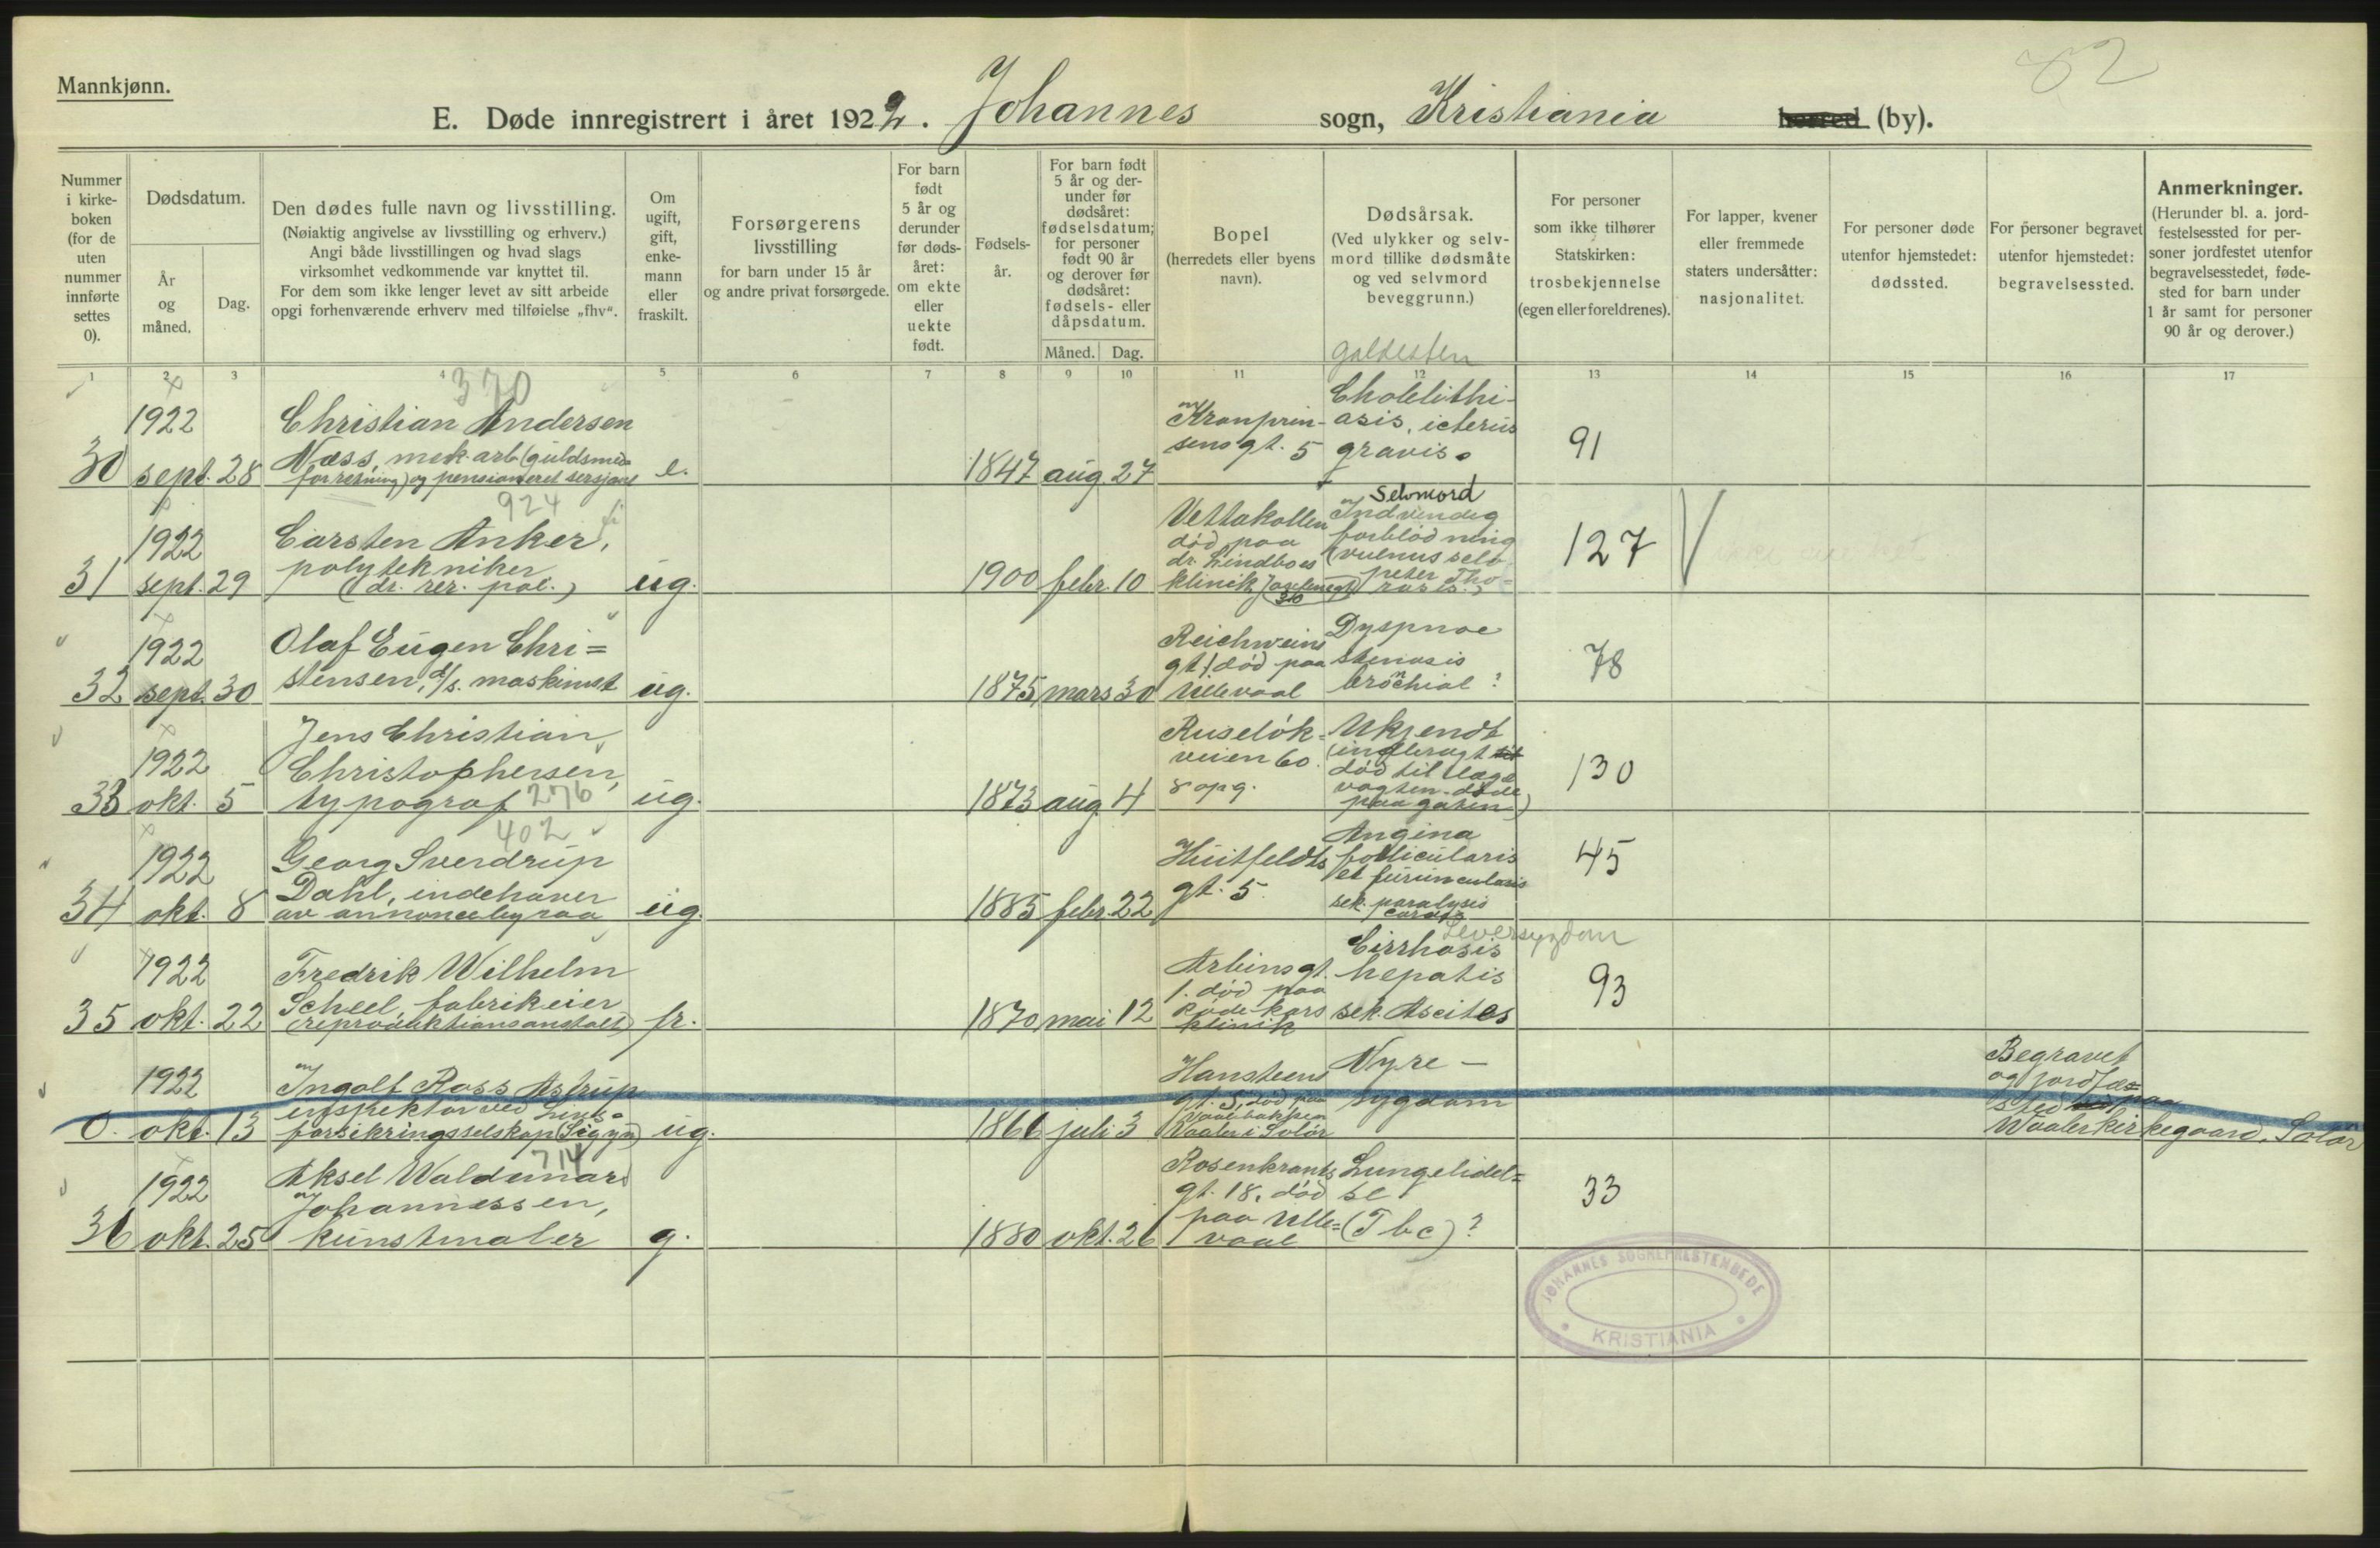 82
Mannkjønn.
E. Døde innregistrert i året 1922. Johannes sogn, Kristiania herred (by).
Nummer i kirke-boken (for de uten nummer innførte settes 0).
Dødsdatum.
År og måned.
Dag.
Den dødes fulle navn og livsstilling.
(Nøiaktig angivelse av livsstilling og erhverv.)
Angi både livsstillingen og hvad slags
virksomhet vedkommende var knyttet til.
For dem som ikke lenger levet av sitt arbeide
opgi forhenværende erhverv med tilføielse „fhv“.
Om ugift, gift, enke-mann eller fraskilt.
Forsørgerens
livsstilling
for barn under 15 år
og andre privat forsørgede.
For barn født 5 år og derunder før døds-året: om ekte eller uekte født.
Fødsels-år.
For barn født 5 år og der-under før dødsåret: fødselsdatum; for personer født 90 år og derover før dødsåret: fødsels- eller dåpsdatum.
Måned. Dag.
Bopel
(herredets eller byens
navn).
Dødsårsak.
(Ved ulykker og selv-
mord tillike dødsmåte
og ved selvmord
beveggrunn.)
For personer
som ikke tilhører
Statskirken:
trosbekjennelse
(egen eller foreldrenes).
For lapper, kvener
eller fremmede
staters undersåtter:
nasjonalitet.
For personer døde
utenfor hjemstedet:
dødssted.
For personer begravet
utenfor hjemstedet:
begravelsessted.
Anmerkninger.
(Herunder bl. a. jord-
festelsessted for per-
soner jordfestet utenfor
begravelsesstedet, føde-
sted for barn under
1 år samt for personer
90 år og derover.)
1 2 3 4 5 6 7 8 9 10 11 12 13 14 15 16 17
370
galdesten
30 1922 sept. 28
Christian Andersen
Næss, mek. arb. (guldsmed
forretning) og pensioneret sersjant
e. 1847 aug 27
Kronprin-
sens gt. 5
Cholelithi-
asis, icterus
gravis.
91
924
31 1922 sept. 29
Carsten Anker,
polytekniker
(dr. rer. pol.)
ug. 1900 febr. 10
Vettakollen
død paa
dr. Lindboes
klinik
Selvmord
Indvendig
forblødning
(vulnus sclo
peter Tho-
racis.)
127 V
32 1922 sept. 30
Olaf Eugen Chri=
stensen, d/s. maskinist
ug. 1875 mars 30
Reichweins
gt. 1 død paa
Ullevaal
Dyspnoe
stenosis
bronchial ?
78
33 1922 okt. 5
Jens Christian
Christophersen,
typograf 276
ug. 1873 aug. 4
Ruseløk=
veien 60.
8 opg.
Ukjendt
(indbragt
død til læge
vagten. døde
paa gaten)
130
402
34 1922 okt. 8
Georg Sverdrup
Dahl, indehaver
av annoncebyraa
ug. 1885 febr. 22
Huitfeldts
gt. 5
Angina
follicularis
et furuncularis
sek. paralysis
cordis
45
35 1922 okt. 22
Fredrik Wilhelm
Scheel, fabrikeier
(reproduktionsanstalt)
fr. 1870 mai 12
Arbins gt.
1. død paa
Røde kors
klinik
Leversygdom
Cirrhosis
hepatis
sek. Ascites
93
0. 1922 okt. 13
Ingolf Ross Astrup
inspektør ved Livs-
forsikringsselskap (Sigyn)
ug. 1866 juli 3
Hansteens
gt. 5, død paa
Vaaler i Solør
Nyre-
sygdom
Begravet
og jordfæ=
sted paa
Vaaler kirkegaard. Solør
714
36 1922 okt. 25
Aksel Waldemar
Johannessen,
kunstmaler
g. 1880 okt. 26
Rosenkrants
gt. 18. død
paa Ulle=
vaal
Lungelidel=
se
(Tbc) ?
33
JOHANNES SOGNEPRESTEMBEDE
KRISTIANIA